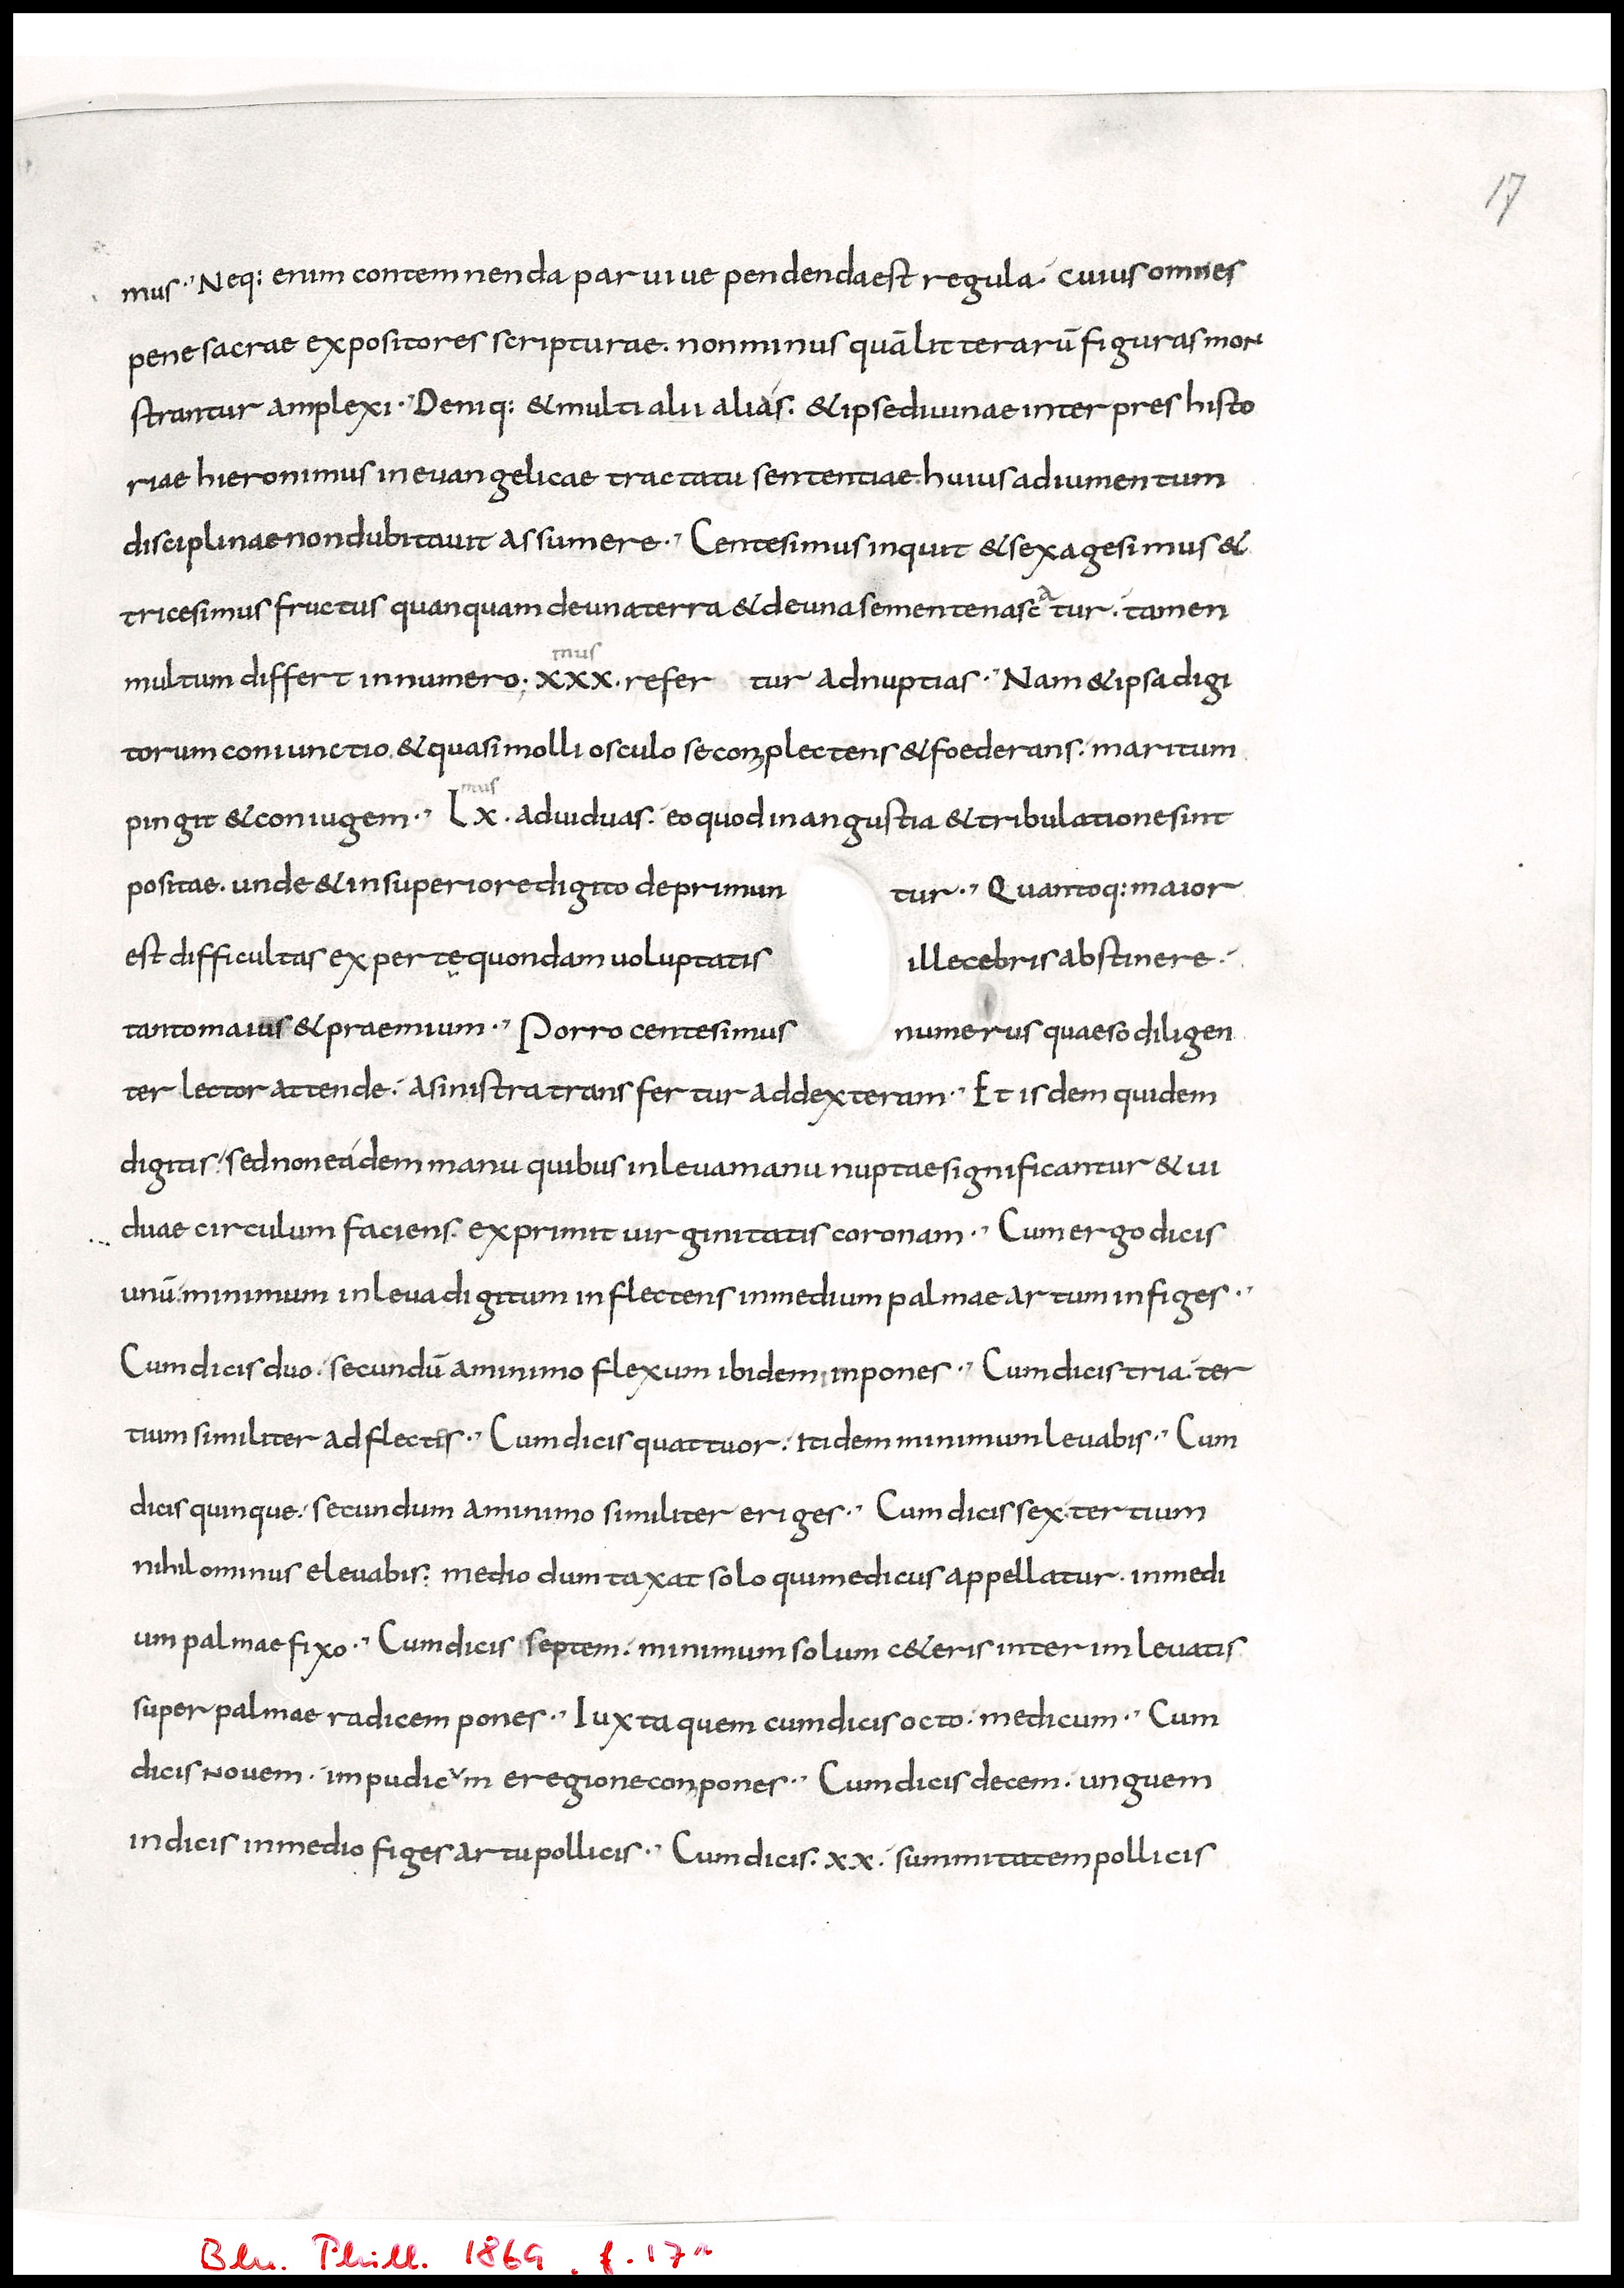 17
mus·, Neq: enim contemnenda parvive pendenda est regula. cuius omnes
pene sacrae expositores scripturae. non minus quā litterarū figuras mon
strantur amplexi·, Deniq: & multi alii aliás. & ipse divinae interpres histo
riae hieronimus in evangelicae tractatu sententiae. huius adiumentum
disciplinae non dubitavit assumere·, Centesimus inquit & sexagesimus &
tricesimus fructus quanquam de una terra & de una semente nascatur. tamen
mus
multum differt in numero. xxx. refer tur ad nuptias·, Nam & ipsa digi
torum coniunctio. & quasi molli osculo se conplectens & foederans. maritum
mus
pingit & coniugem·, Lx. ad viduas. eo quod in angustia & tribulatione sint
positae. unde & in superiore digito deprimun tur·, Quantoq: maior
est difficultas expertę quondam voluptatis illecebris abstinere.
tanto maius & praemium·, Porro centesimus numerus quaeso diligen
ter lector attende. a sinistra transfertur ad dexteram·, Et isdem quidem
digitis. sed non eádem manu quibus in leva manu nuptae significantur & vi
duae circulum faciens. exprimit virginitatis coronam·, Cum ergo dicis
unū. minimum in leva digitum inflectens in medium palmae artum infiges·,
Cum dicis duo. secundū a minimo flexum ibidem inpones·, Cum dicis tria. ter
tium similiter adflectis·, Cum dicis quattuor. itidem minimum levabis·, Cum
dicis quinque. secundum a minimo similiter eriges·, Cum dicis sex. tertium
nihilominus elevabis. medio dumtaxat solo qui medicus appellatur. in medi
um palmae fixo·, Cum dicis septem. minimum solum c&eris interim levatis
super palmae radicem pones·, Iuxta quem cum dicis octo. medicum·, Cum
dicis novem. impudicum e regione conpones·, Cum dicis decem. unguem
indicis in medio figes artu pollicis·, Cum dicis. xx. summitatem pollicis
Bln. Phill. 1869, f. 17r